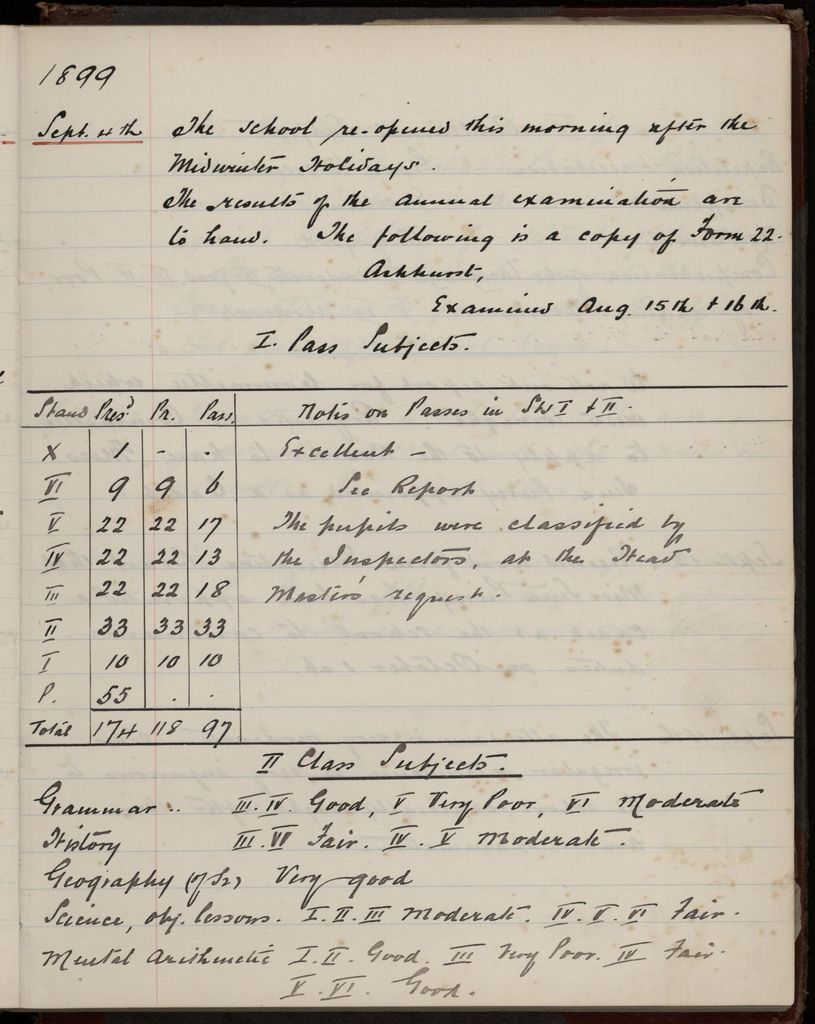 1899
Sept. 4th The school re-opened this morning after the
Midwinter Holidays.
The results of the annual examination are
to hand. The following is a copy of Form 22.
Ashhurst,
Examined Aug. 15th & 16th.
I. Pass Subjects.
Stand Presd Pr. Pass. Notes on Passes in Sts I & II.
X 1 - . Excellent -
VI 9 9 6 See Report
V 22 22 17 The pupils were classified by
IV 22 22 13 the Inspectors, at the Head
III 22 22 18 Master's request.
II 33 33 33
I 10 10 10
P. 55 . .
Total 174 118 97
II Class Subjects.
Grammar .. III. IV. Good, V Very Poor, VI Moderate
History III. VI Fair. IV. V Moderate.
Geography (of Sr) Very good
Science, obj. lessons. I. II. III Moderate. IV. V. VI Fair.
Mental Arithmetic I. II. Good. III Very Poor. IV Fair.
V. VI. Good.